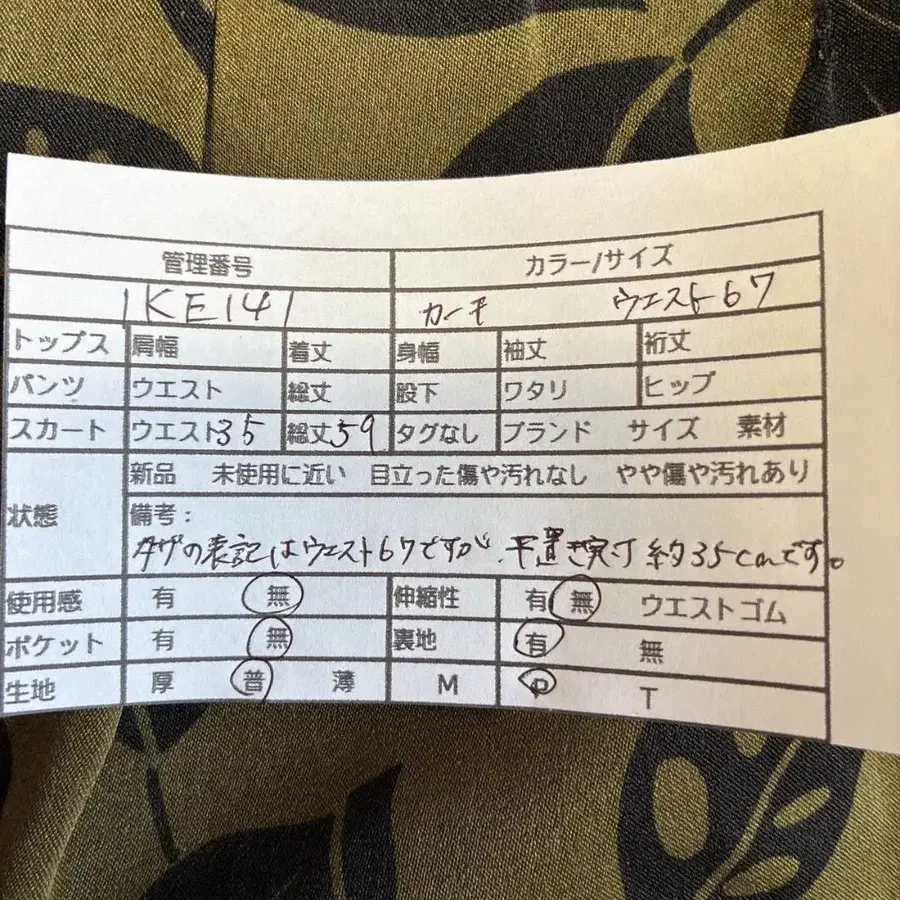 管理番号 カラー/サイズ
IKE141 カーキ ウエスト67
トップス 肩幅 着丈 身幅 袖丈 裄丈
パンツ ウエスト 総丈 股下 ワタリ ヒップ
スカート ウエスト35 総丈59 タグなし ブランド サイズ 素材
新品 未使用に近い 目立った傷や汚れなし やや傷や汚れあり
状態 備考:
タグの表記はウエスト67ですが、平置き実寸約35cmです。
使用感 有 無 伸縮性 有 無 ウエストゴム
ポケット 有 無 裏地 有 無
生地 厚 普 薄 M P T